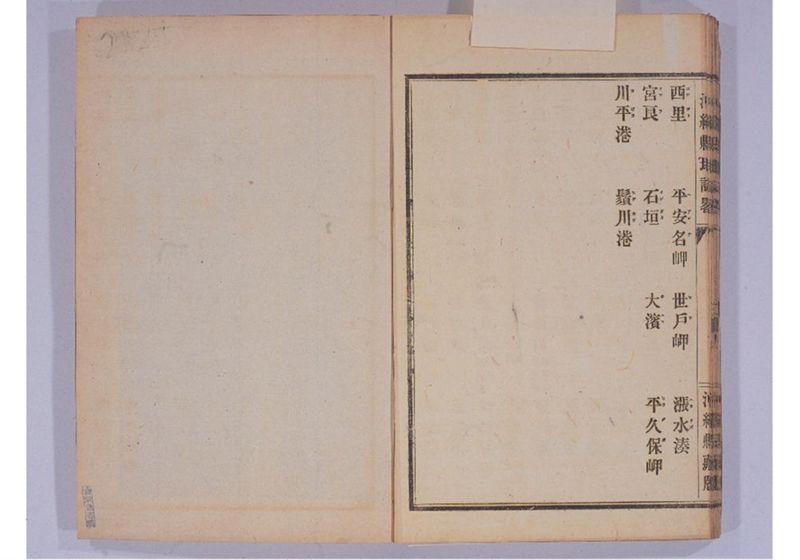 沖縄縣地誌畧
沖縄縣
西里　平安名岬　世戸岬　漲水湊
宮良　石垣　大濱　平久保岬
川平港　鬚川港